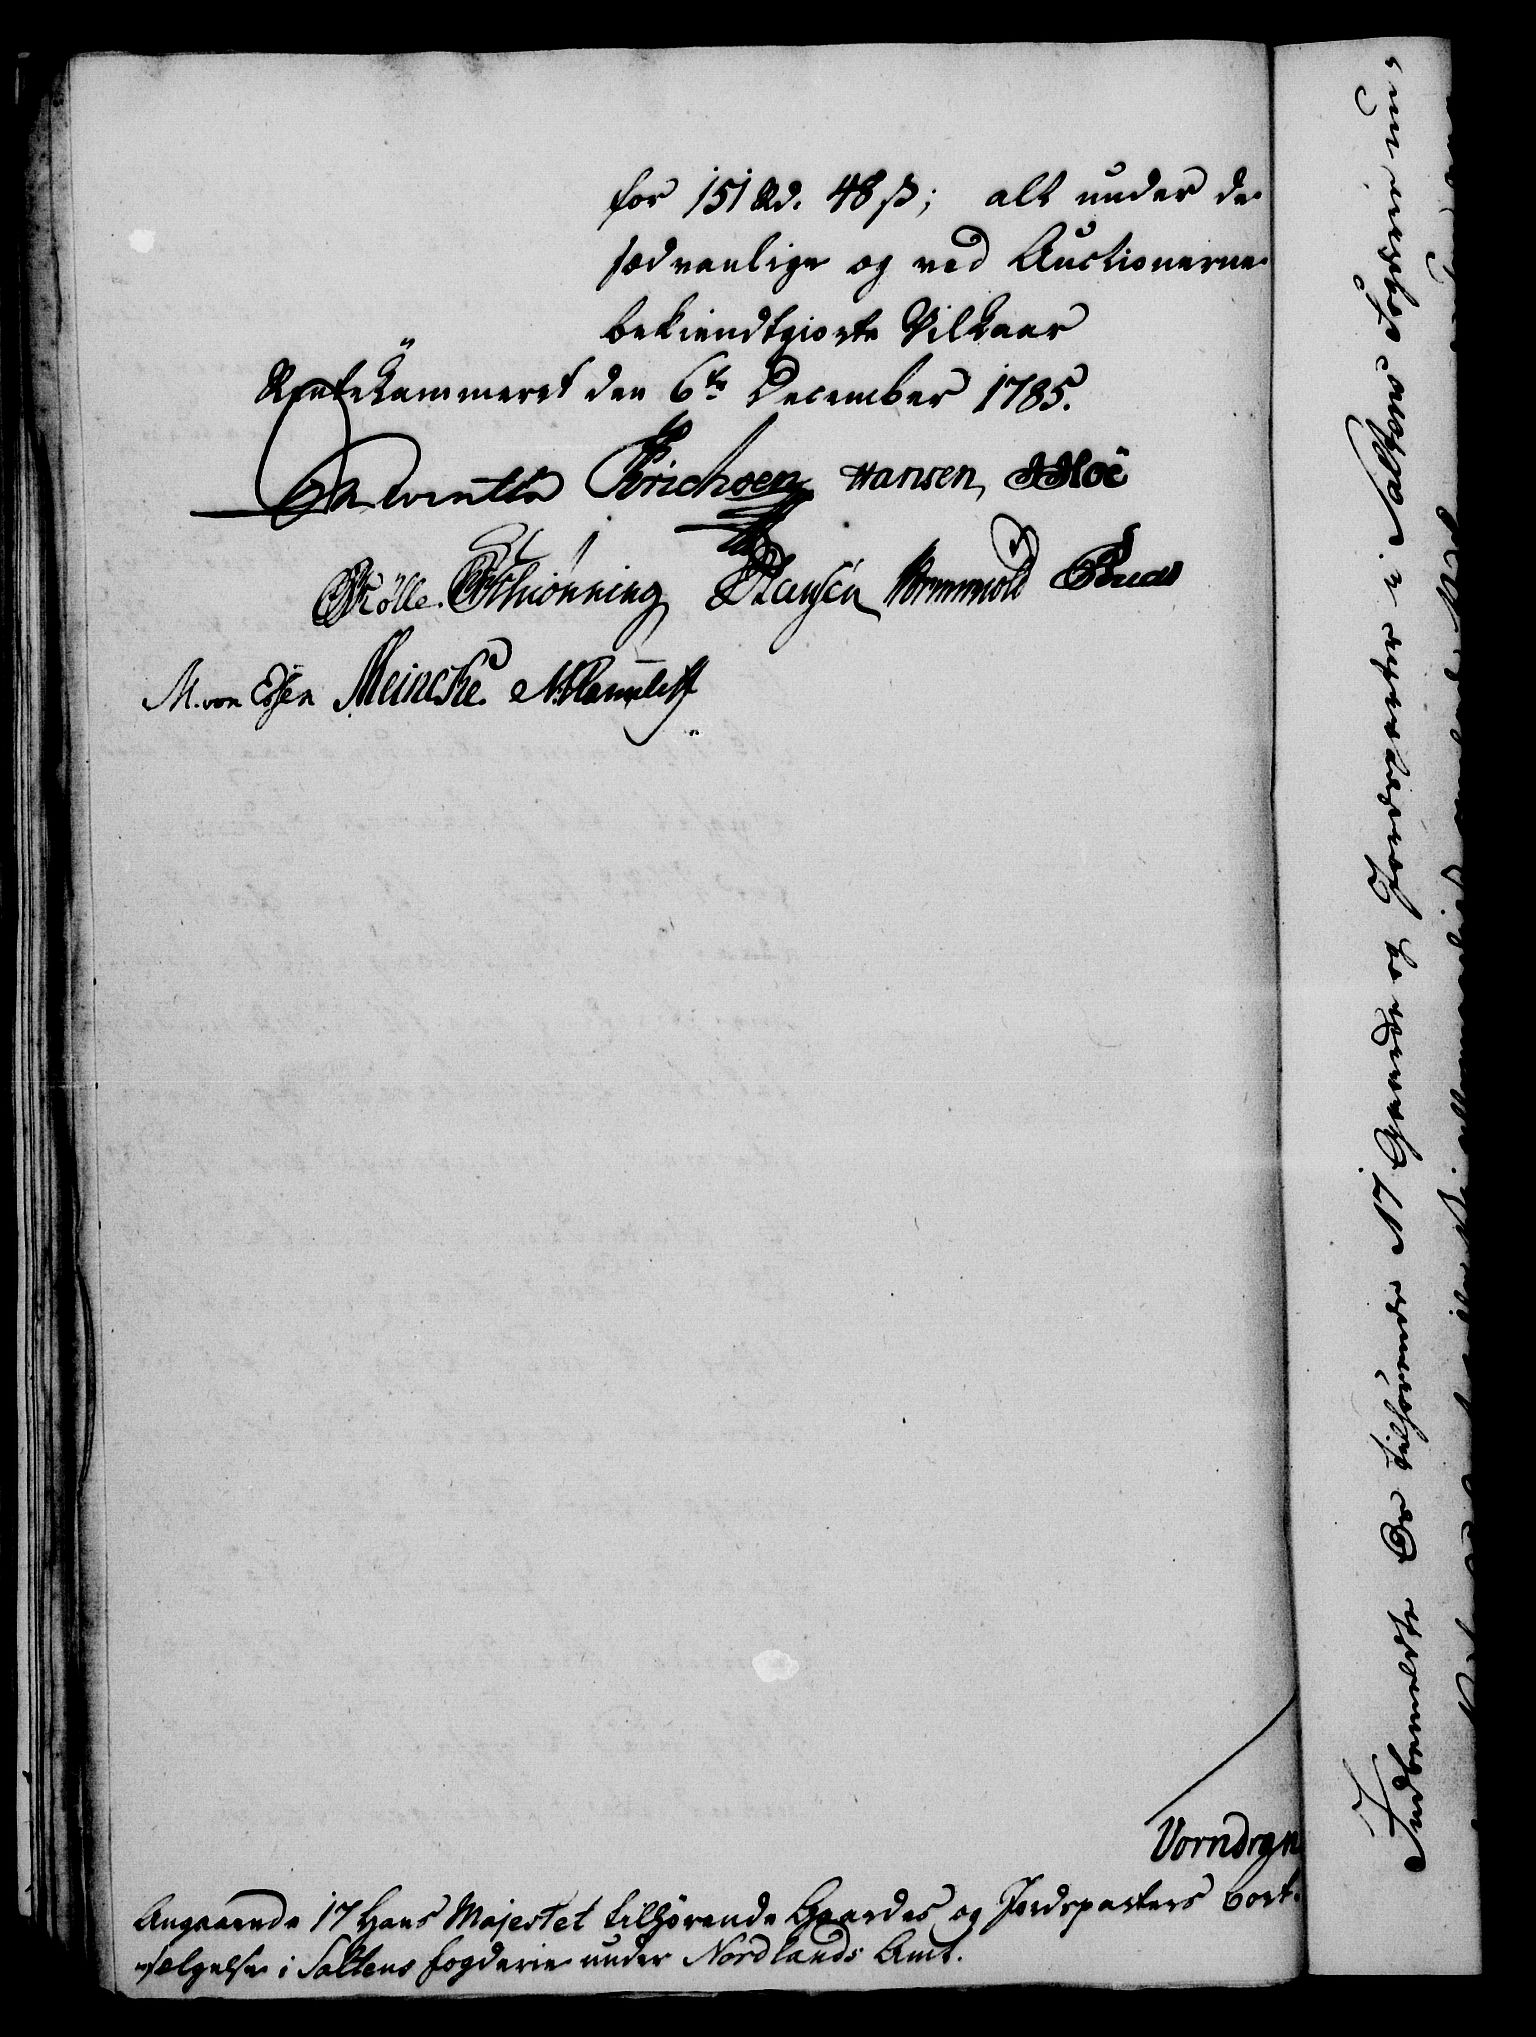 for 151 Rd. 48 ß; alt under de
sædvanlige og ved Auctionerne
bekiendtgiorte Vilkaar
Rentekammeret den 6te December 1785.
Erichsen Hansen,
Rölle. Schiønning Hansen
M. von Essen Meincke
Vorndran
Angaaende 17 Hans Majestet tilhørende Gaardes og Jordsparters bort-
sælgelse i Saltens fogderie under Nordlands Amt.
Indbemeldte Os tilhørende 17 Gaarde og Jordeparter i Saltens Fogderie un-